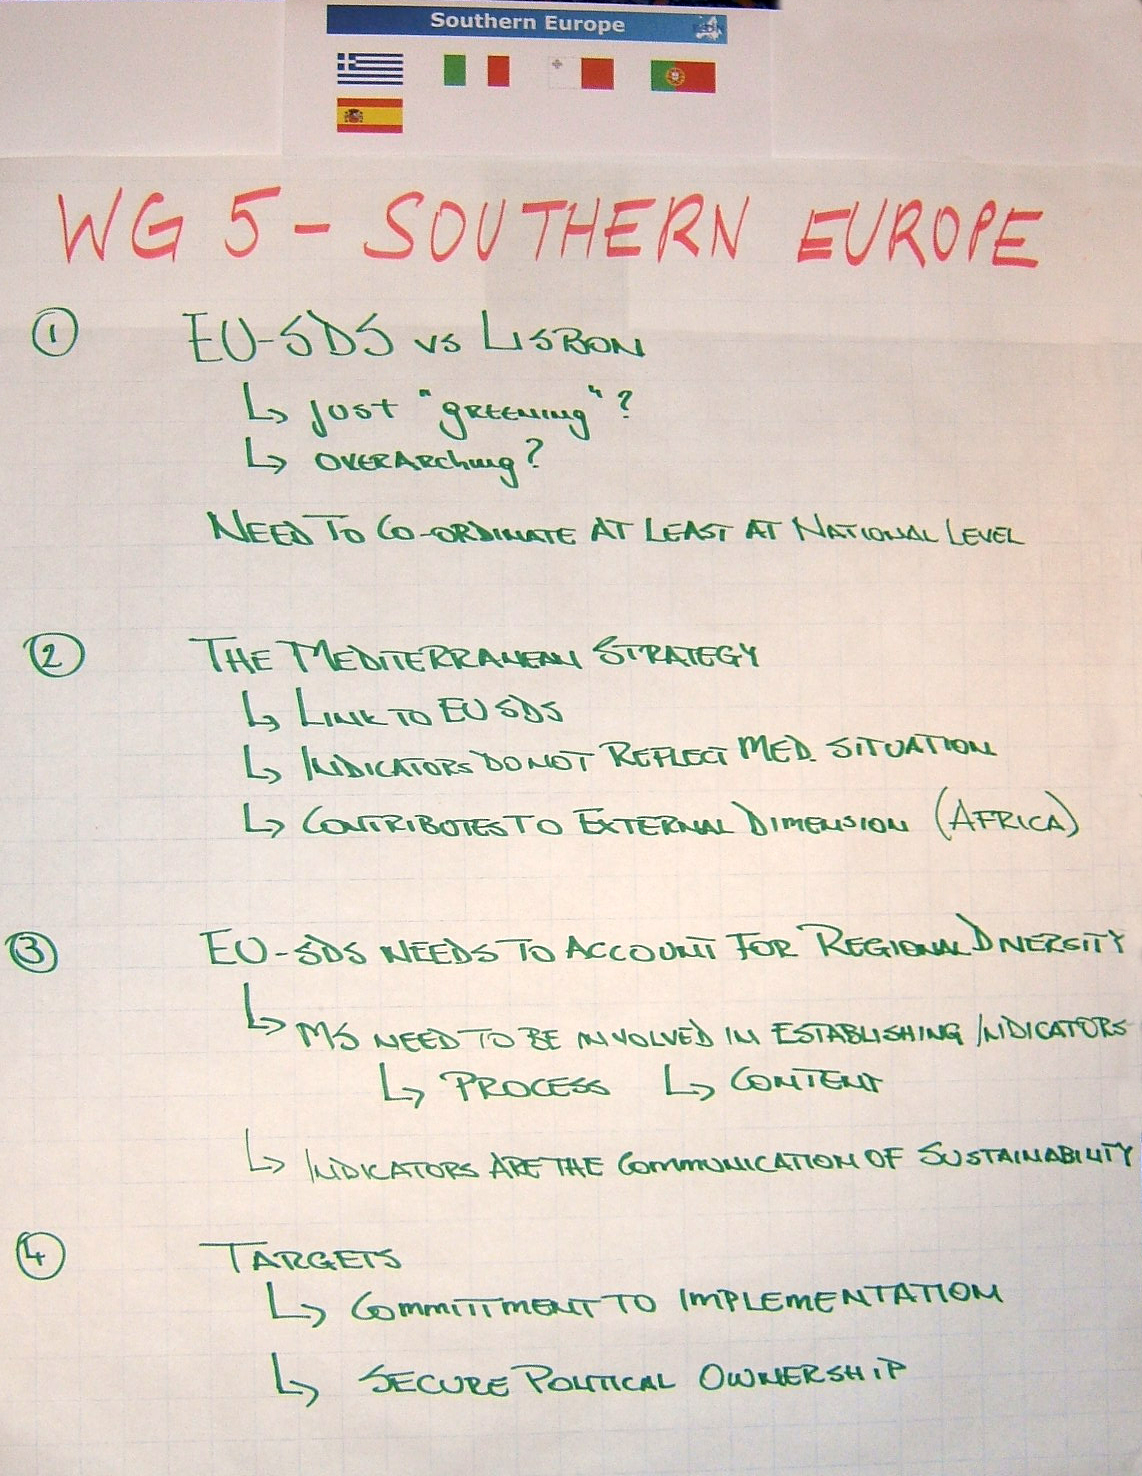 Southern Europe
WG 5 - SOUTHERN EUROPE
1 EU-SDS vs LISBON
↳ JUST "GREENING"?
↳ OVERARCHING?
NEED TO CO-ORDINATE AT LEAST AT NATIONAL LEVEL
2 THE MEDITERRANEAN STRATEGY
↳ LINK TO EU SDS
↳ INDICATORS DO NOT REFLECT MED. SITUATION
↳ CONTRIBUTES TO EXTERNAL DIMENSION (AFRICA)
3 EU-SDS NEEDS TO ACCOUNT FOR REGIONAL DIVERSITY
↳ MS NEED TO BE INVOLVED IN ESTABLISHING INDICATORS
↳ PROCESS ↳ CONTENT
↳ INDICATORS ARE THE COMMUNICATION OF SUSTAINABILITY
4 TARGETS
↳ COMMITTMENT TO IMPLEMENTATION
↳ SECURE POLITICAL OWNERSHIP